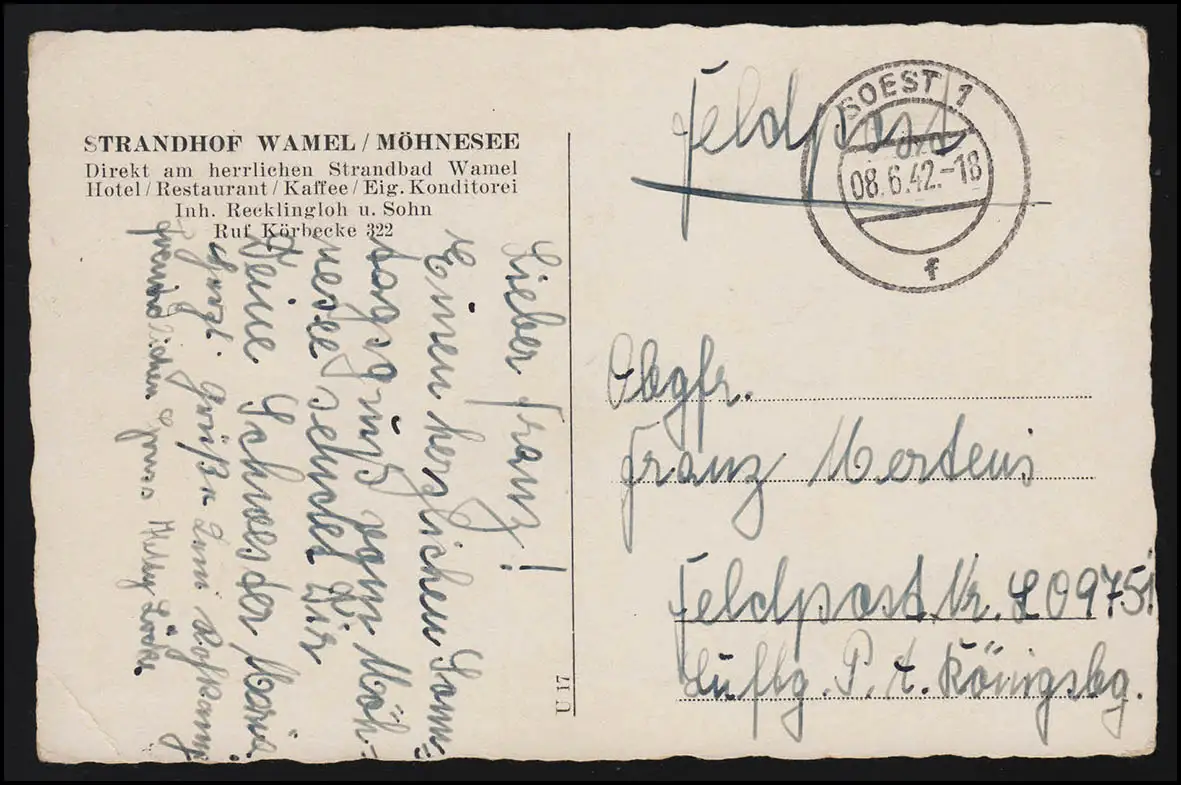 STRANDHOF WAMEL / MÖHNESEE
Direkt am herrlichen Strandbad Wamel
Hotel / Restaurant / Kaffee / Eig. Konditorei
Inh. Recklingloh u. Sohn
Ruf Körbecke 322
Lieber Franz!
Einen herzlichen Sonn=
tagsgruß vom Möh-
nesee sendet Dir
Deine Schwester Maria
Grüße
freundlichen
U 17
Feldpost
SOEST 1
08.6.42.-18
f
Obgfr.
Franz Mertens
Feldpost Nr. L 09751
Luftg. P. A. Königsbg.